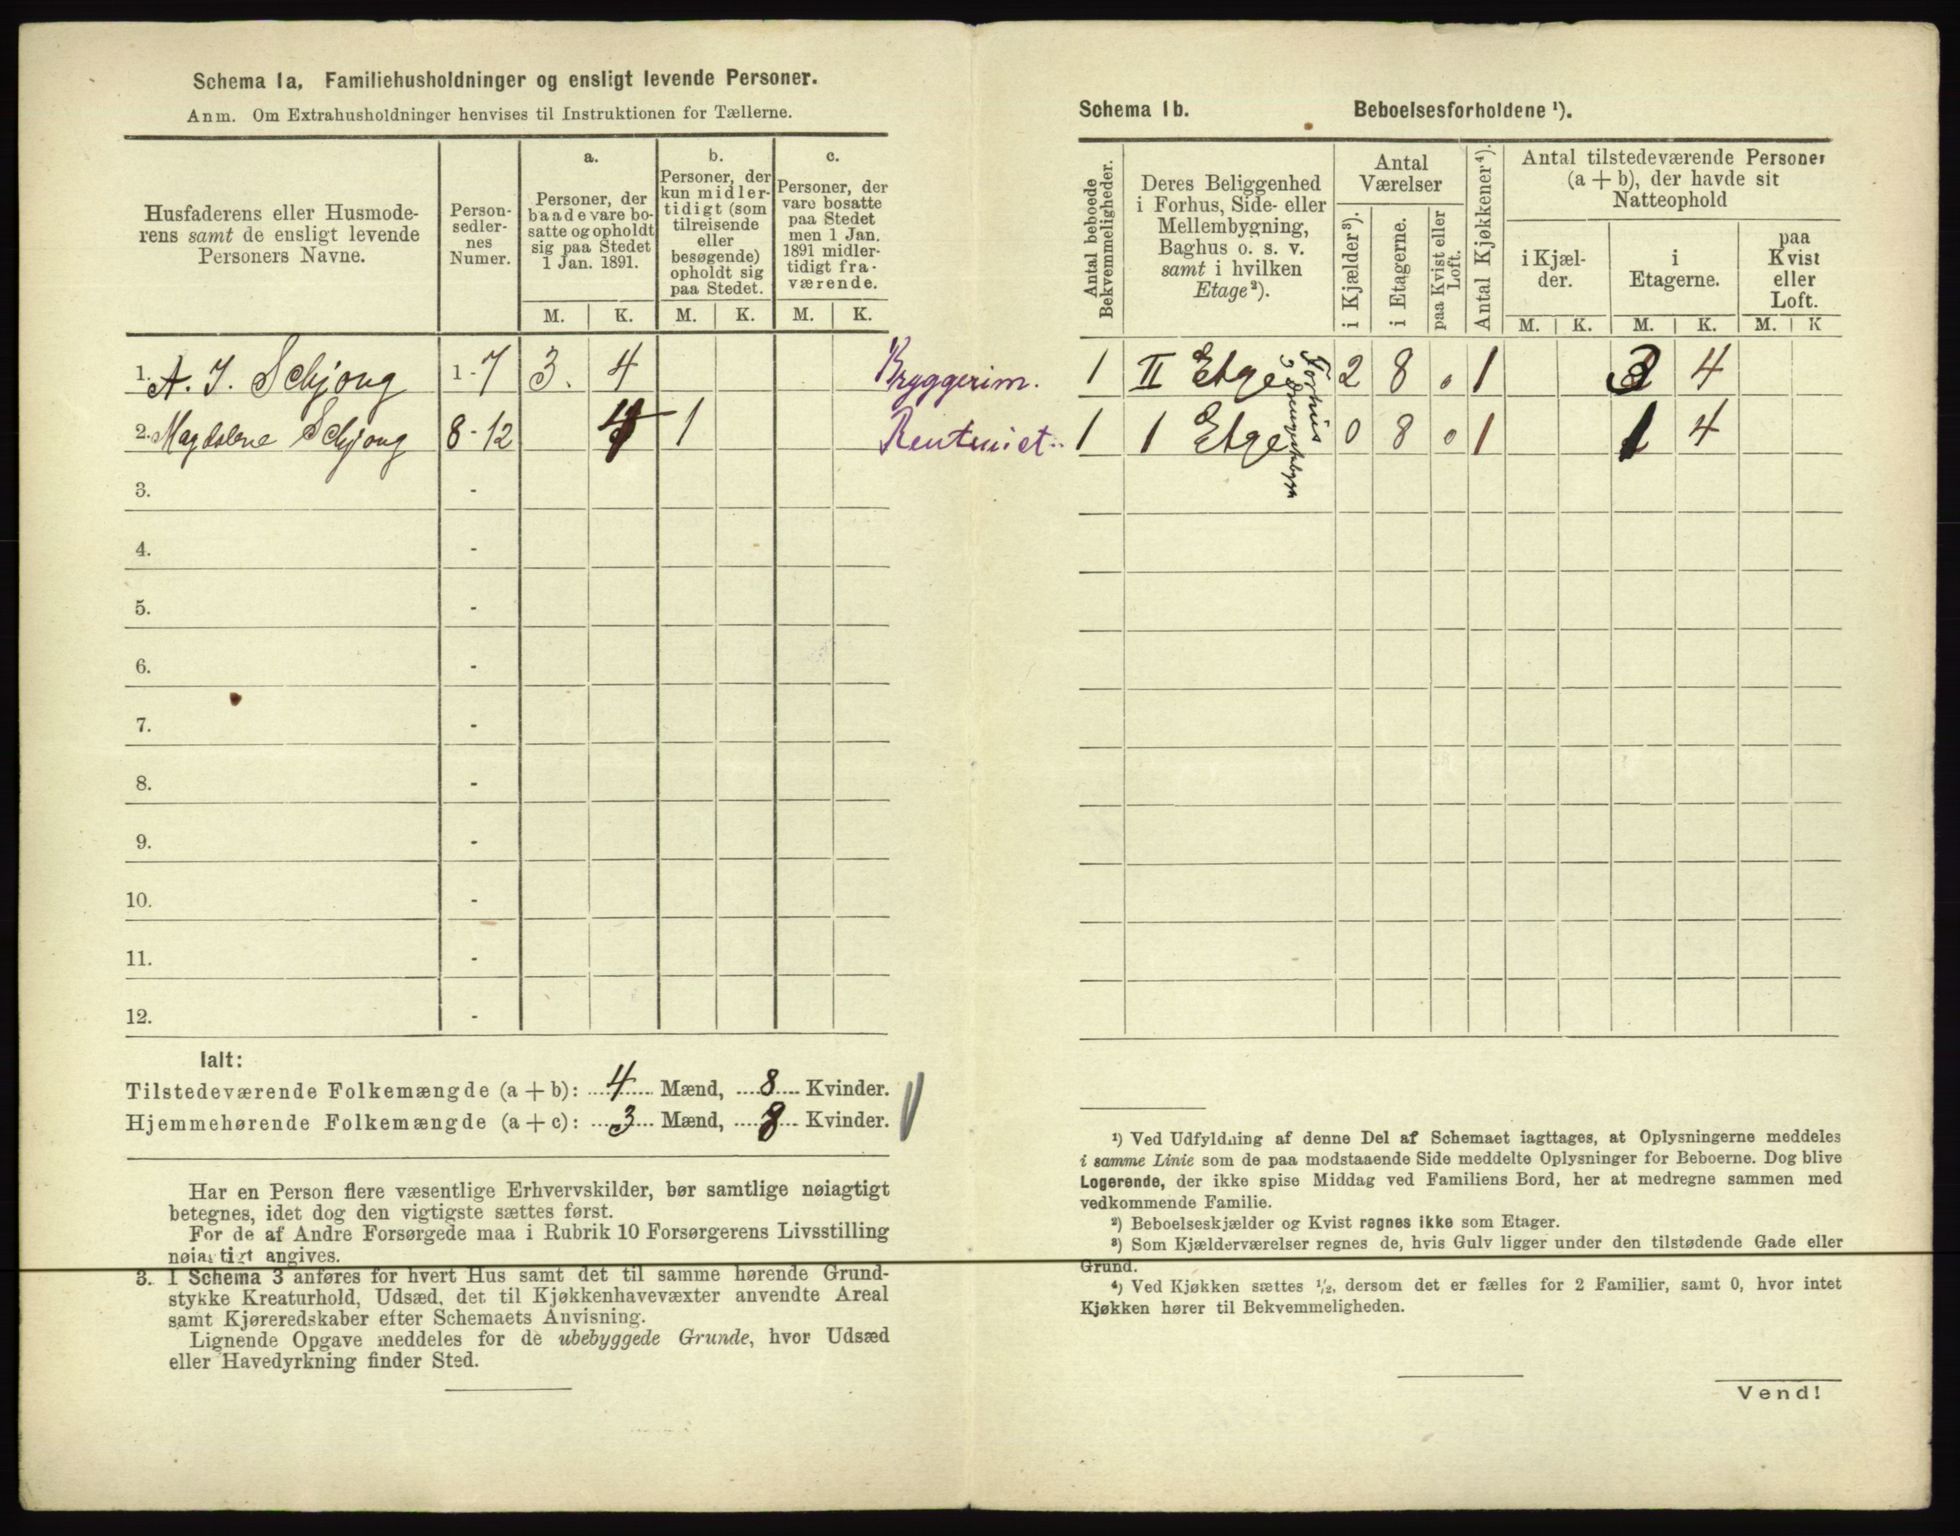 Schema 1a, Familiehusholdninger og ensligt levende Personer.
Anm. Om Extrahusholdninger henvises til Instruktionen for Tællerne.
Husfaderens eller Husmode-
rens samt de ensligt levende
Personers Navne.
Person-
sedler-
nes
Numer.
a.
Personer, der
baade vare bo-
satte og opholdt
sig paa Stedet
1 Jan. 1891.
b.
Personer, der
kun midler-
tidigt (som
tilreisende
eller
besøgende)
opholdt sig
paa Stedet.
c.
Personer, der
vare bosatte
paa Stedet
men 1 Jan.
1891 midler-
tidigt fra-
værende.
M. K. M. K. M. K.
1. A. J. Schjong 1 - 7 3. 4 Bryggerim.
2. Magdalene Schjong 8 - 12 4 1 Rentniet..
3. -
4. -
5. -
6. -
7. -
8. -
9. -
10. -
11. -
12. -
Ialt:
Tilstedeværende Folkemængde (a + b): 4 Mænd, 8 Kvinder.
Hjemmehørende Folkemængde (a + c): 3 Mænd, 8 Kvinder.
Har en Person flere væsentlige Erhvervskilder, bør samtlige nøiagtigt
betegnes, idet dog den vigtigste sættes først.
For de af Andre Forsørgede maa i Rubrik 10 Forsørgerens Livsstilling
nøiagtigt angives.
3. I Schema 3 anføres for hvert Hus samt det til samme hørende Grund-
stykke Kreaturhold, Udsæd, det til Kjøkkenhavevæxter anvendte Areal
samt Kjøreredskaber efter Schemaets Anvisning.
Lignende Opgave meddeles for de ubebyggede Grunde, hvor Udsæd
eller Havedyrkning finder Sted.
Schema 1b. Beboelsesforholdene ¹).
Antal beboede
Bekvemmeligheder.
Deres Beliggenhed
i Forhus, Side- eller
Mellembygning,
Baghus o. s. v.
samt i hvilken
Etage²).
Antal
Værelser
i Kjælder³).
i Etagerne.
paa Kvist eller
Loft.
Antal Kjøkkener⁴).
Antal tilstedeværende Personer
(a + b), der havde sit
Natteophold
i Kjæl-
der.
i
Etagerne.
paa
Kvist
eller
Loft.
M. K. M. K. M. K
1 II Etge Forhus 2 8 0 1 3 4
1 1 Etge 0 8 0 1 1 4
¹) Ved Udfyldning af denne Del af Schemaet iagttages, at Oplysningerne meddeles
i samme Linie som de paa modstaaende Side meddelte Oplysninger for Beboerne. Dog blive
Logerende, der ikke spise Middag ved Familiens Bord, her at medregne sammen med
vedkommende Familie.
²) Beboelseskjælder og Kvist regnes ikke som Etager.
³) Som Kjælderværelser regnes de, hvis Gulv ligger under den tilstødende Gade eller
Grund.
⁴) Ved Kjøkken sættes ½, dersom det er fælles for 2 Familier, samt 0, hvor intet
Kjøkken hører til Bekvemmeligheden.
Vend!